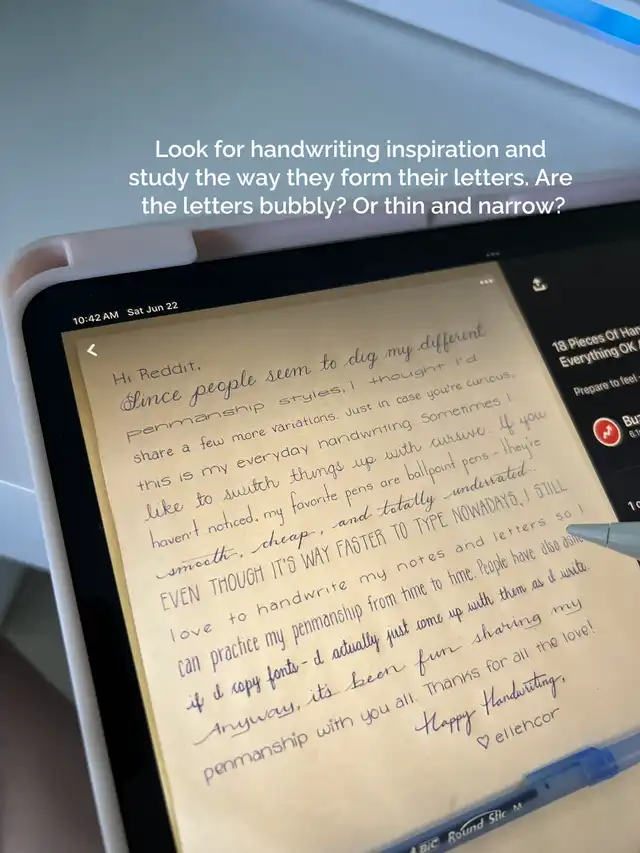 Look for handwriting inspiration and
study the way they form their letters. Are
the letters bubbly? Or thin and narrow?
10:42 AM Sat Jun 22
Hi Reddit,
Since people seem to dig my different
penmanship styles, I thought I'd
share a few more variations. Just in case you're curious,
this is my everyday handwriting. Sometimes I
like to switch things up with cursive. If you
haven't noticed, my favorite pens are ballpoint pens - they're
smooth, cheap, and totally underrated.
EVEN THOUGH IT'S WAY FASTER TO TYPE NOWADAYS, I STILL
love to handwrite my notes and letters so I
can practice my penmanship from time to time. People have also aske
if I copy fonts - I actually just come up with them as I write.
Anyway, it's been fun sharing my
penmanship with you all. Thanks for all the love!
Happy Handwriting,
♡ ellehcor
BIC Round Stic M
18 Pieces Of Han
Everything OK
Prepare to feel
Bu